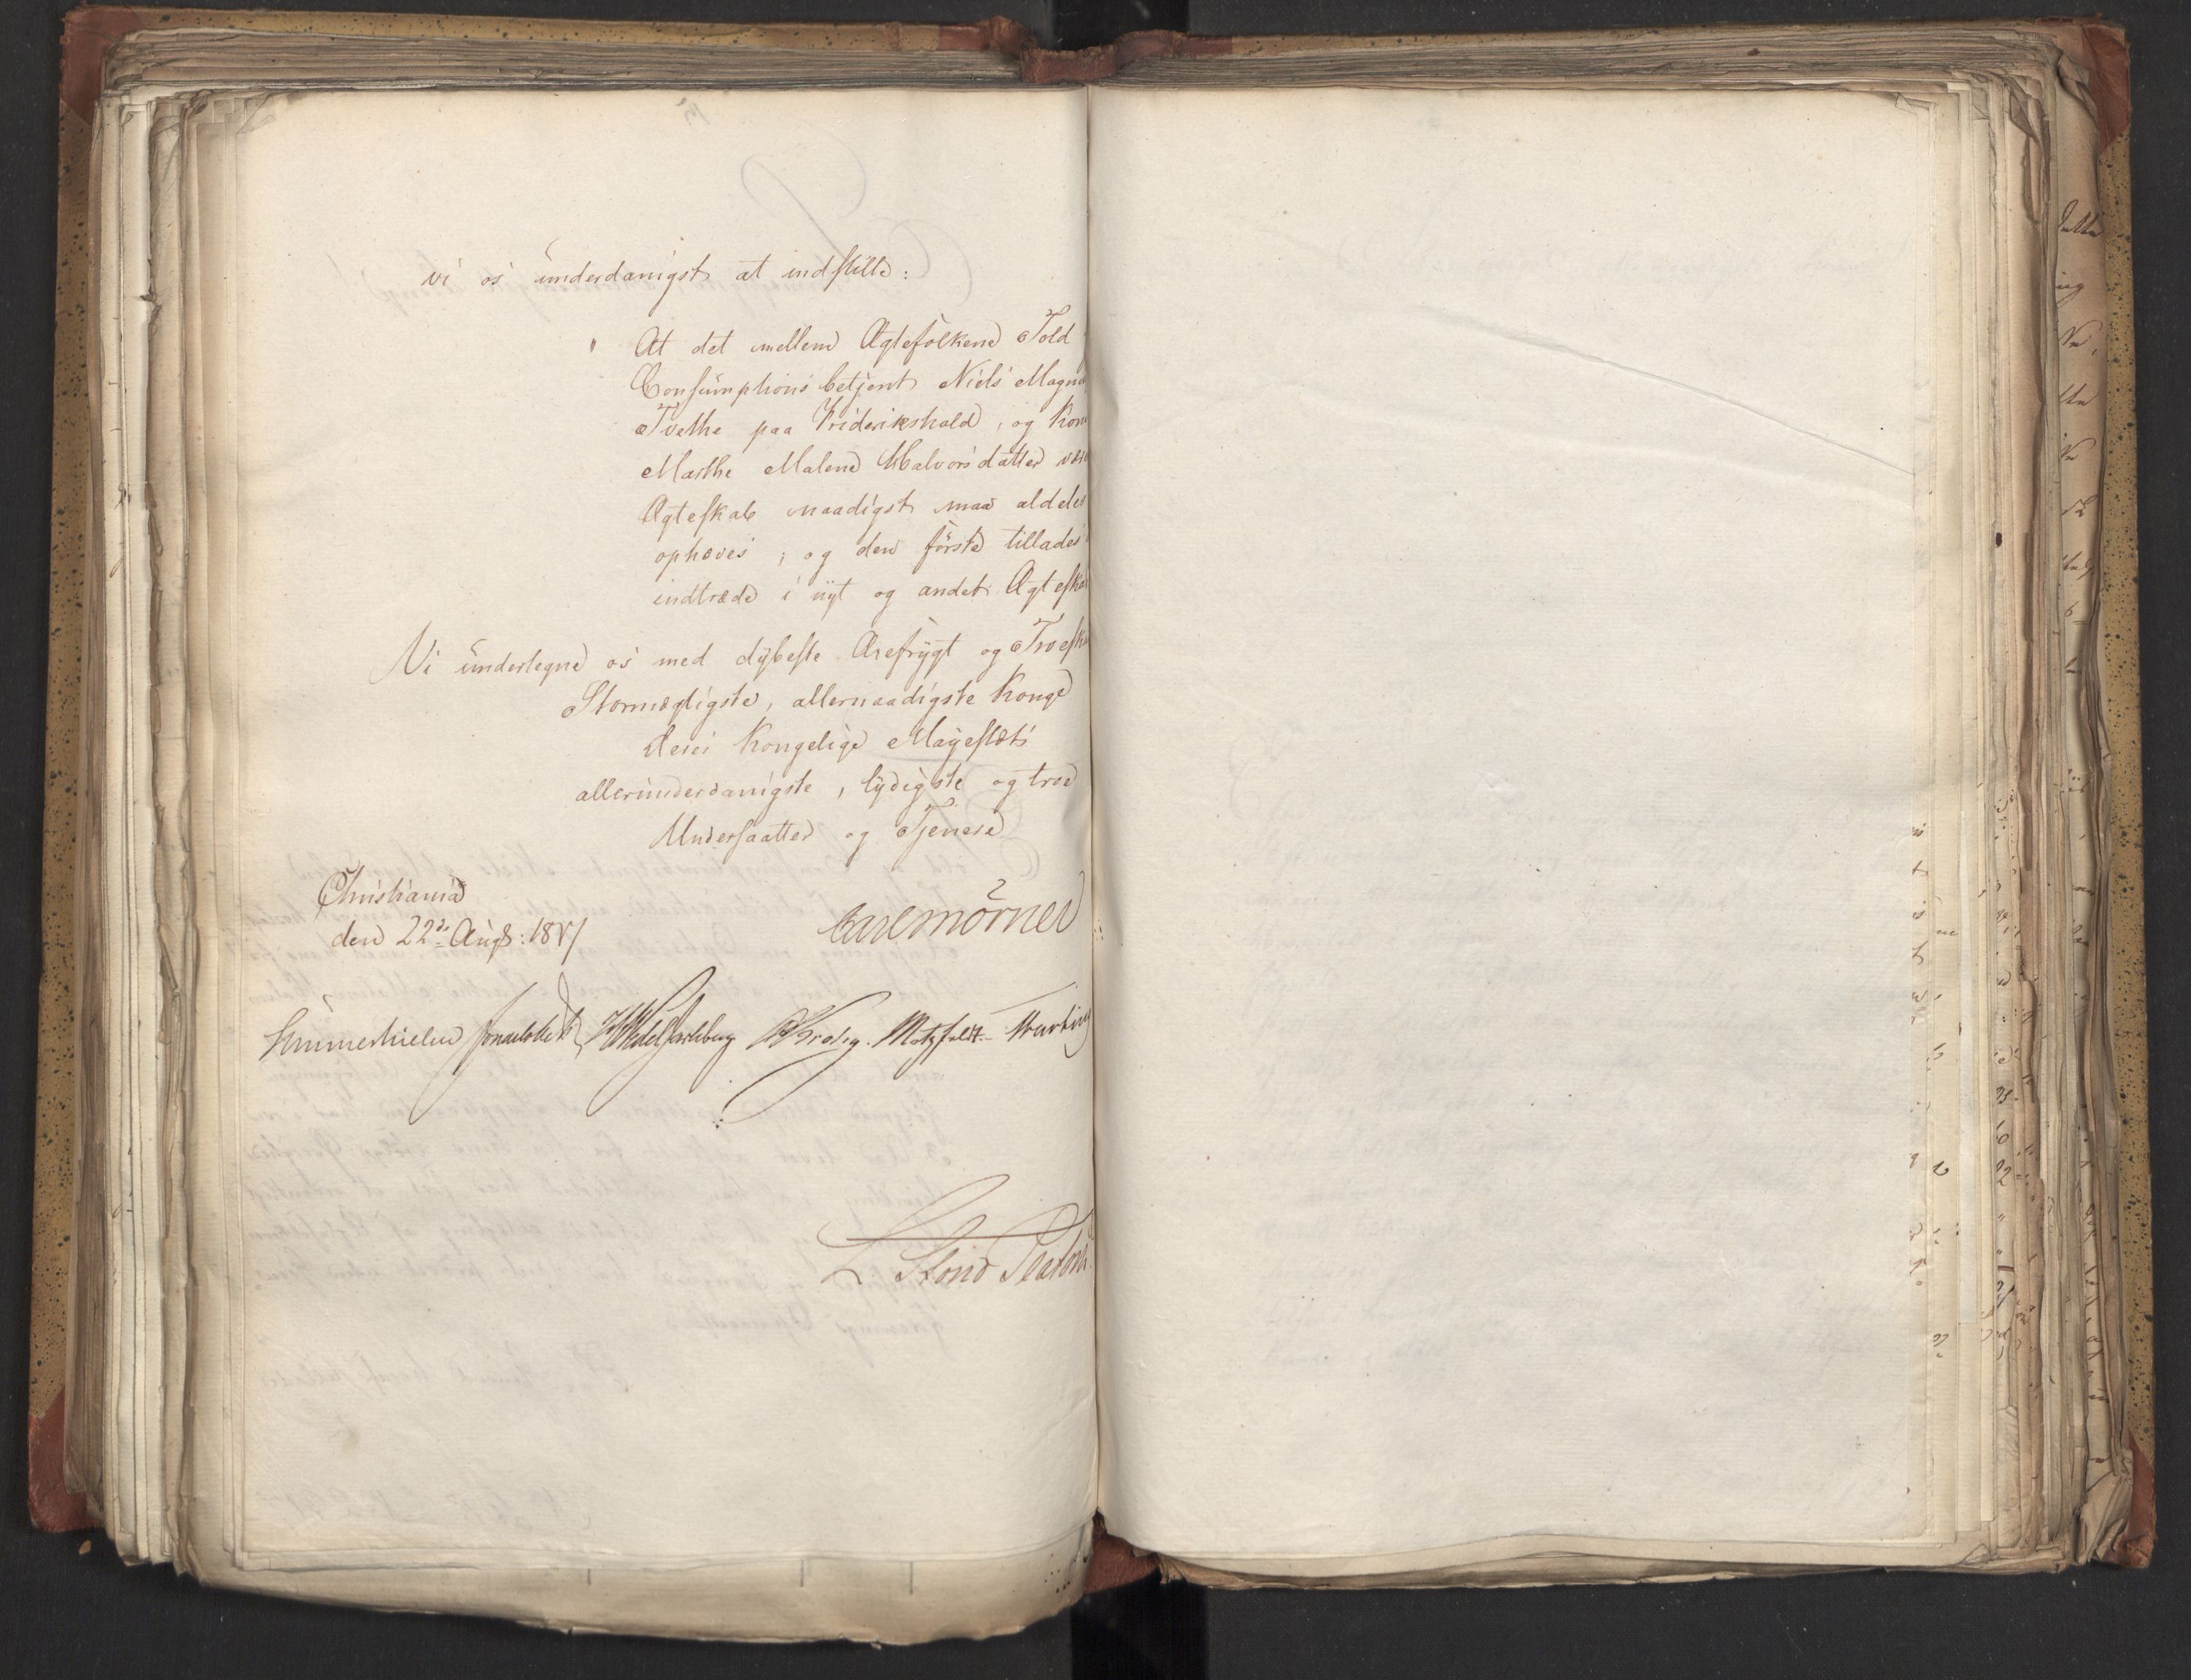 vi os underdanigst at indstille:
" At det mellem Ægtefolkene Told
Consumptions betjent Niels Magn
Tvethe paa Friderikshald, og Kon
Marthe Malene Halvorsdatter vær
Ægteskab naadigst maa aldeles
ophæves; og den første tillades
indtræde i nyt og andet Ægteska
Vi undertegne os med dybeste Ærefrygt og Troesk
Stormægtigste, allernaadigste Konge
Deres Kongelige Mayestæts
allerunderdanigste, lydigste og troe
Undersaatter og Tjenere
Christiania
den 22de Augs: 1817
Carl Mörner
Sommerhielm Jonas Collett HWedel Jarlsberg Krohg. Motzfeldt
L Stoud Platou